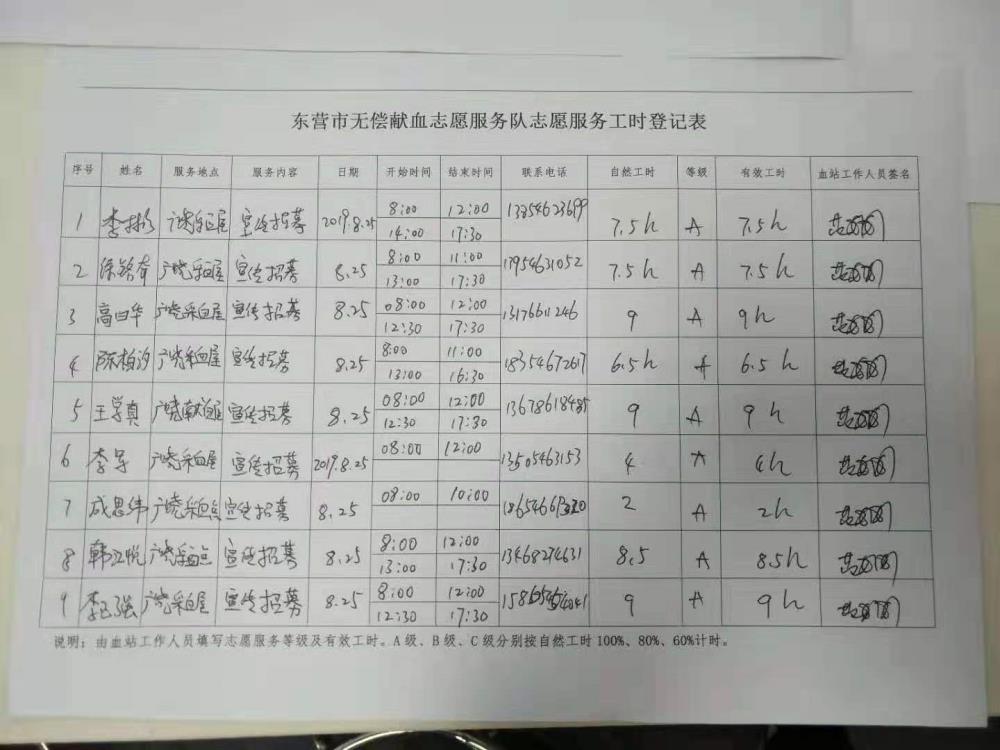 东营市无偿献血志愿服务队志愿服务工时登记表
序号 姓名 服务地点 服务内容 日期 开始时间 结束时间 联系电话 自然工时 等级 有效工时 血站工作人员签名
1 李彬 广饶采血屋 宣传招募 2019.8.25 8:00 12:00 7.5h A 7.5h
14:00 17:30
2 广饶采血屋 宣传招募 8.25 8:00 11:00 17954631052 7.5h A 7.5h
13:00 17:30
3 高四华 广饶采血屋 宣传招募 8.25 08:00 12:00 13176611246 9 A 9h
12:30 17:30
4 陈柏汐 广饶采血屋 宣传招募 8.25 8:00 11:00 18354672617 6.5h A 6.5h
13:00 16:30
5 王学真 宣传招募 8.25 08:00 12:00 13678618485 9 A 9h
12:30 17:30
6 李军 广饶采血屋 宣传招募 2019.8.25 08:00 12:00 13505463153 4 A 4h
7 成思纬 广饶采血点 宣传招募 8.25 08:00 10:00 2 A 2h
8 韩 广饶采血点 宣传招募 8.25 8:00 12:00 13468274631 8.5 A 8.5h
13:00 17:30
9 广饶采血屋 宣传招募 8.25 8:00 12:00 9 A 9h
12:30 17:30
说明：由血站工作人员填写志愿服务等级及有效工时。A级、B级、C级分别按自然工时100%、80%、60%计时。